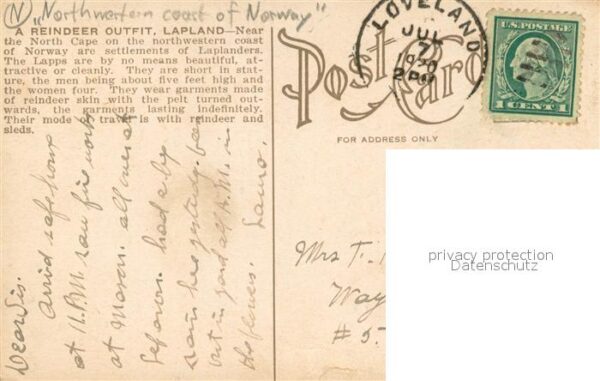 (N) "Northwestern coast of Norway"
A REINDEER OUTFIT, LAPLAND—Near
the North Cape on the northwestern coast
of Norway are settlements of Laplanders.
The Lapps are by no means beautiful, at-
tractive or cleanly. They are short in stat-
ure, the men being about five feet high and
the women four. They wear garments made
of reindeer skin with the pelt turned out-
wards, the garments lasting indefinitely.
Their mode of travel is with reindeer and
sleds.
Post Card
FOR ADDRESS ONLY
LOVELAND
JUL
7
2PM
U.S. POSTAGE
1 CENT 1
Dear Sis.
arrived safe home
at 11. P.M. saw fire works
at Mason. all over at
had a big
rain here yesterday been
out in yard all A.M. in
the flowers. Laura.
Mrs T.
Way
# 5
privacy protection
Datenschutz